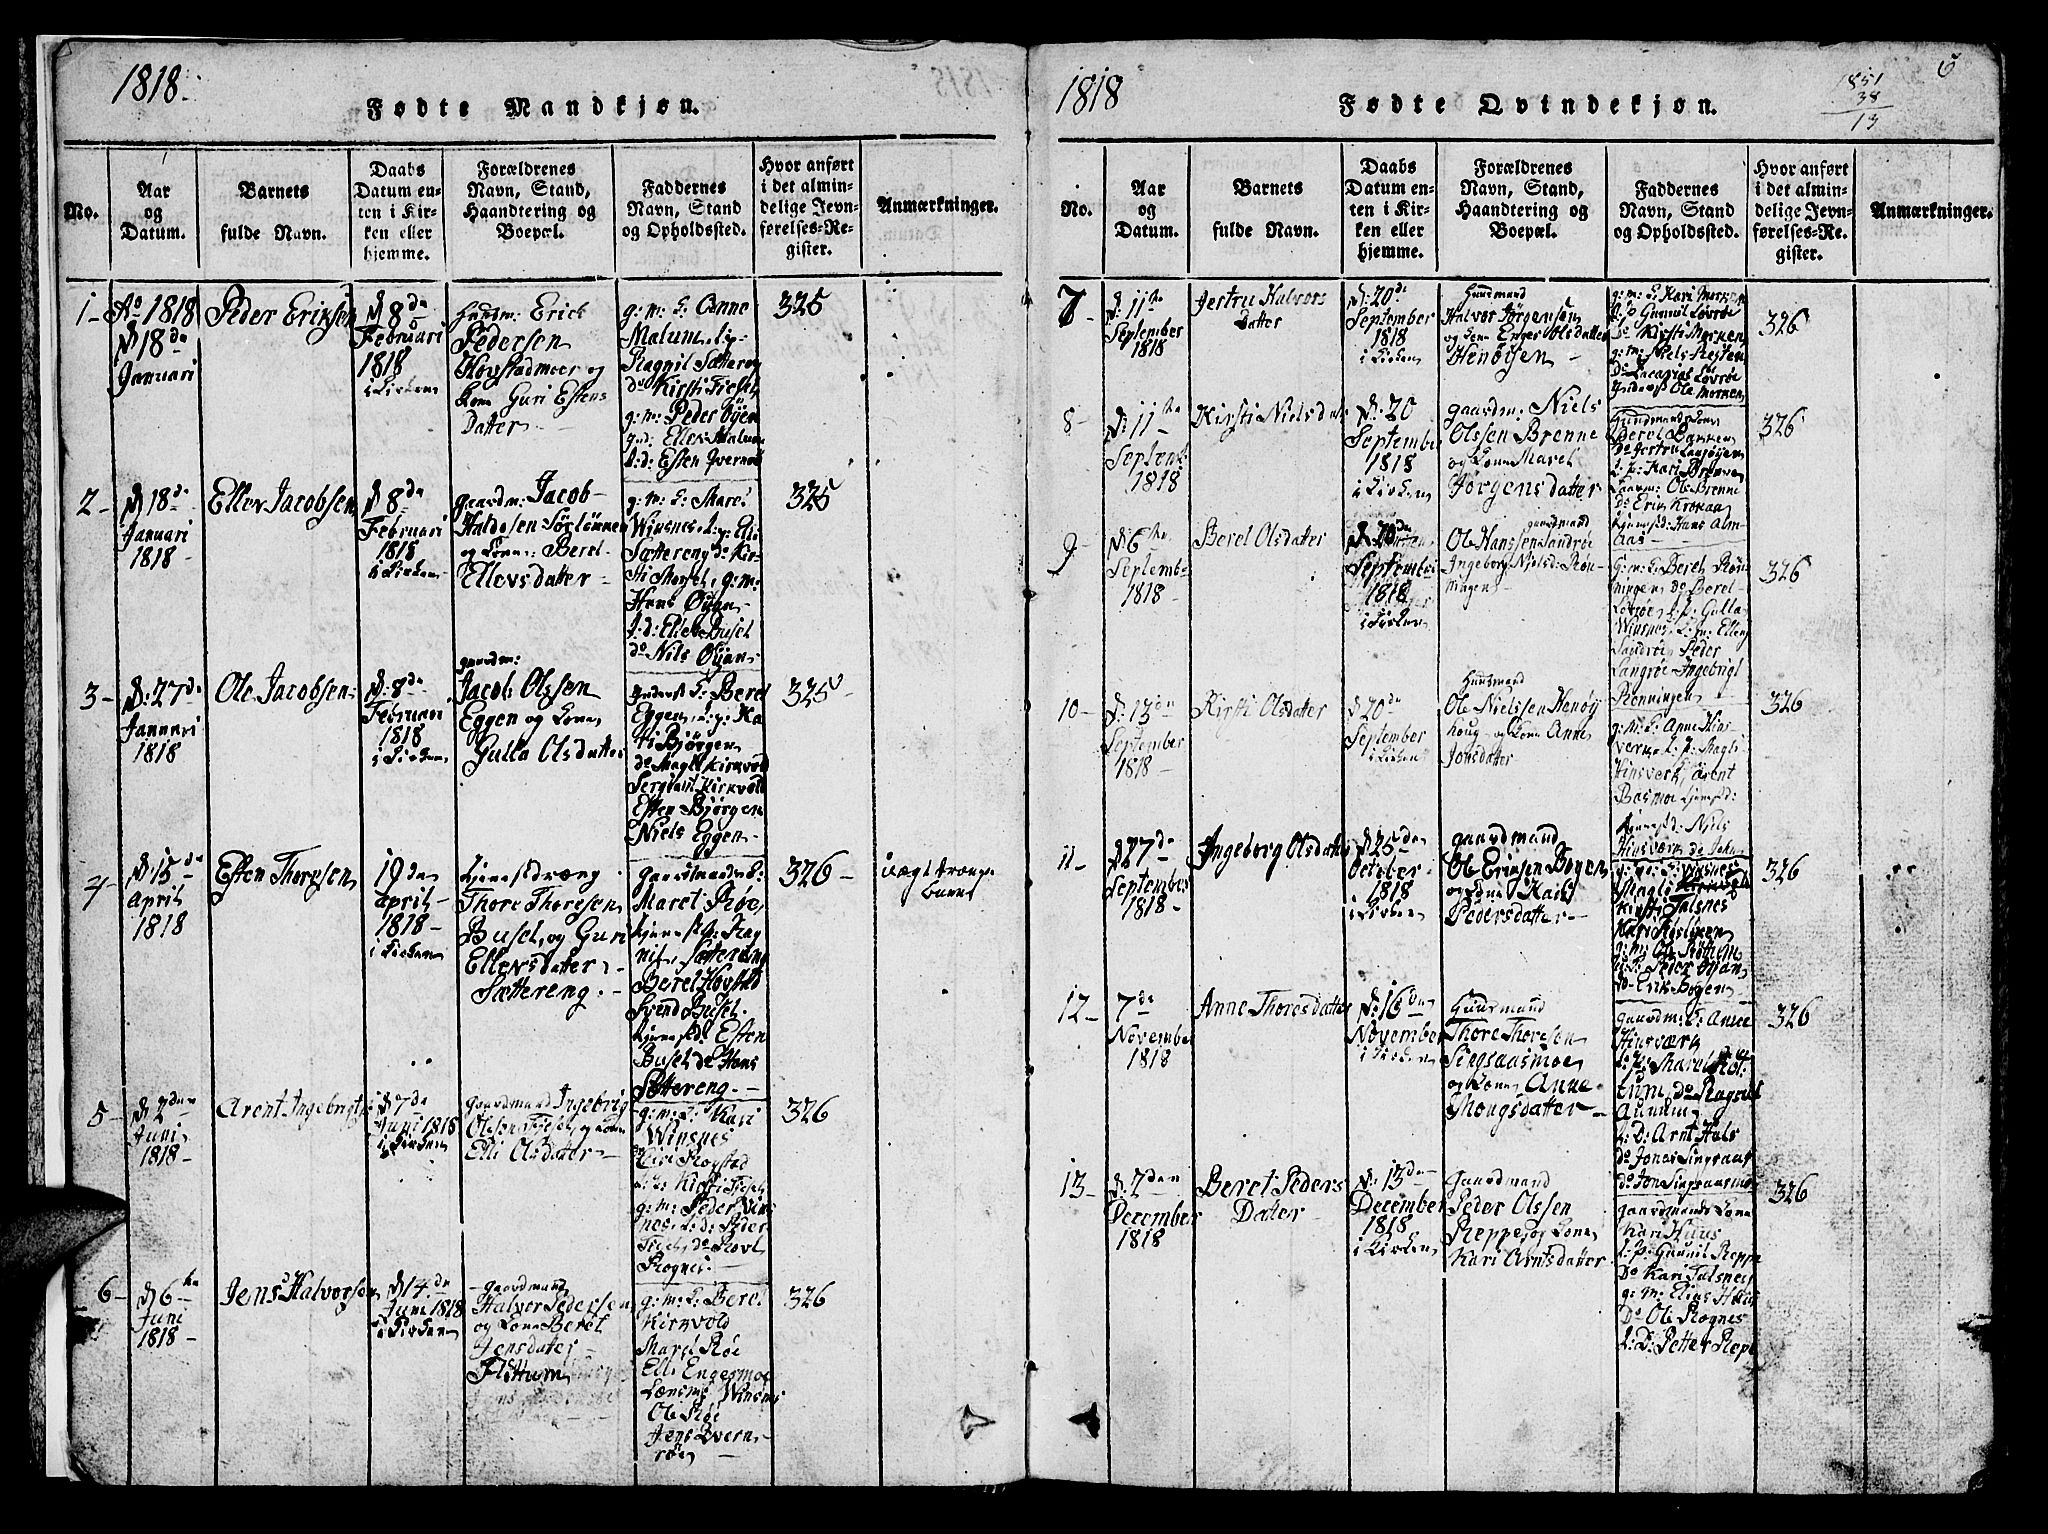 1818.
Fødte Mandkjøn.
No.
Aar
og
Datum.
Barnets
fulde Navn.
Daabs
Datum en-
ten i Kir-
ken eller
hjemme.
Forældrenes
Navn, Stand,
Haandtering og
Boepæl.
Faddernes
Navn, Stand
og Opholdssted.
Hvor anført
i det almin-
delige Jevn-
førelses-Re-
gister.
Anmærkninger.
1-
Ao 1818
D 18de
Januari
Peder Eriksen
D 8de
Februari
1818
i Kirken
Huusm: Erich
Pedersen
Hovstadmoer og
Kone Guri Estens
Datter
g: m: K: Anne
Malum, l: p:
Ragnil Sættereng
do Kirsti
g: m: Peder Øyen
Ellev Malum
Esten
325
2-
D 18de
Januari
1818
Ellev Jacobsen
D 8de
Februari
1818
i Kirken
gaardm: Jacob
Haldosen Sørlønnen
og Kone: Beret
Ellevsdatter
g: m: K: Mare
Winsnes, l: p:
Sættereng do Kir-
sti g: m:
Hans Øyan
do Nils Øyan
325
3-
D: 27de
Januari
1818
Ole Jacobsen
D: 8de
Februari
1818
i Kirken
gaardm:
Jacob Olssen
Eggen og Kone
Gulla Olsdatter
Beret
Eggen, l: p: Ka-
ri Bjørgen
do Magli Kirkvold
Sergeant Kirkvold
Esten Bjørgen
Niels Eggen
325
4-
D 15de
April
1818
Esten Thoresen
19de
April
1818
i Kirken
Tjenestdræng
Thore Thoresen
Busel, og Guri
Ellevsdatter
Sættereng
gaardmands K:
Maret Røe
Tjenest p: Rag-
nil Sættereng
Beret Hovstad
Svend Busel
Tjenestd: Esten
Busel do Hans
Sættereng
326-
Uægte
Barn
5-
D 2den
Juni
1818-
Arent Ingebrigts
D 7de
Juni 1818
i Kirken
gaardmand Ingebrig
Olssen og Kone
Elli Olsdatter
g: m: K: Kari
Winsnes
Rogstad
Kirsti
g: m: Peder Vins
nes, l: d: Peder
Rognes
326
6-
D 6te
Juni
1818-
Jens Halvorsen
D 14de
Juni 1818
i Kirken
gaardmand
Halvor Pedersen
og Kone Beret
Jensdatter
Flottum
g: m: K: Beret
Kirkvold
Maret Røe
Elli Engesmoe
Winsnes
Ole Røe
Jens Kvern-
røe
326
1818
Fødte Qvindekjøn.
1851
38
13
6
No.
Aar
og
Datum.
Barnets
fulde Navn.
Daabs
Datum en-
ten i Kir-
ken eller
hjemme.
Forældrenes
Navn, Stand,
Haandtering og
Boepæl.
Faddernes
Navn, Stand
og Opholdssted.
Hvor anført
i det almin-
delige Jevn-
førelses-Re-
gister.
Anmærkninger.
7
D: 11te
September
1818
Jertru Halvors
Datter
D: 20de
September
1818
i Kirken
Huusmand
Halvor Jørgensen
og Kone Enger Olsdatter
Henøisen
g: m: K: Kari Morken
l: p: Gunnil Løvrøe
do Kirsti Morken
g: m: Niels
Løvrøe
Ole Morken
326
8-
D: 11te
Septemb
1818
Kirsti Nielsdatt
D: 20
September
1818
i Kirken
gaardm: Niels
Olssen Brenne
og Kone Maret
Jørgensdatter
Huusmands Kone
Beret Bakken
do Jertru Langøien
l: p: Kari Brenne
Ole Brenne
do Erik Krokaa
Tjenestd: Hans Alm-
aas
326
9-
D 6te
Septemb
1818
Beret Olsdatter
D: 20de
September
1818
i Kirken
gaardmand
Ole Hanssen Sandrøe
Ingeborg Nielsd: Røn-
ningen
g: m: K: Beret Røn
ningen do Beret
Løvrøe, l: p: Gulla
Winsnes, l: m: Ellen
Sandrøe Peder
Langrøe Ingebrigt
Rønningen
326
10-
D: 13de
September
1818
Kirsti Olsdatter
D 20de
September
i Kirken
Huusmand
Ole Nielssen Henøy
houg og Kone Anne
Jonsdatter
g: m: K: Anne Hins
verk l: p: Magli
Hinsverk, Arent
Basmoe Tjenestd:
Tjenestd: Niels
Hinsverk do John
326
11-
D 27de
September
1818
Ingeborg Olsdatte
D 25de
October
1818
i Kirken
gaardmand
Ole Eriksen Bogen
og Kone Kari
Pedersdatter
Winsnes
Magli
Kirsti Talsnes
Kari
g: m: Ole
Peder Øyan
Erik Bogen
326
12-
7de
November
1818
Anne Thoresdatter
D: 15de
November
i Kirken
Huusmand
Thore Thoresen
Singsaasmoe
og Kone Anne
Mongsdatter
gaardm: K: Anne
Hinsværk
l: p: Maret Flot
tum, do Ragnil
Aunum
l: D: Arnt Hals
do Jonas Singsaas
do Jon Singsaasmoe
326
13-
D: 7den
December
1818
Beret Peders
Datter
D: 13de
December
1818
i Kirken
Gaardmand
Peder Olssen
Reppe, og Kone
Kari Arntsdatter
gaardmands Kone
Kari Huus
l: p: Gunnil Reppe
Do Kari Talsnes
g: m: Elias Huus
Do Ole Rognes
l: D: Petter Repp
326